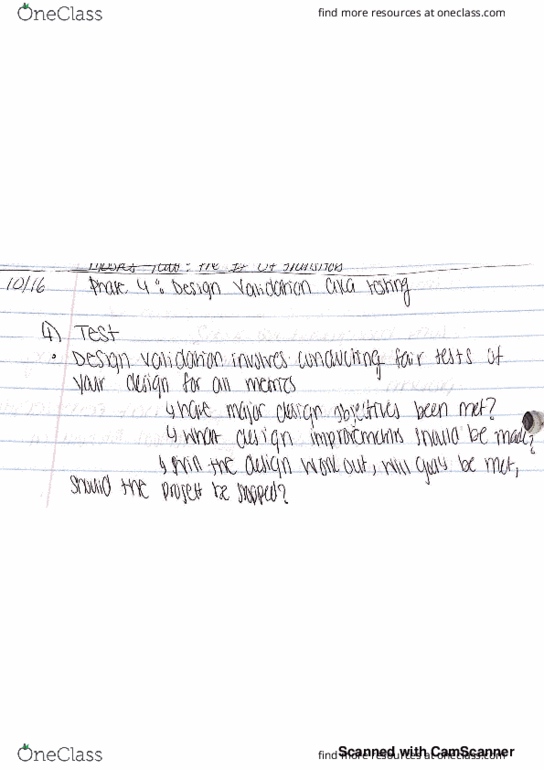 OneClass
find more resources at oneclass.com
10/16 Phase 4: Design Validation aka testing
4) Test
• Design validation involves conducting fair tests of
your design for all metrics
↳ have major design objectives been met?
↳ what design improvements should be made?
↳ will the design work out, will goals be met,
should the project be stopped?
OneClass
find more resources at oneclass.com
Scanned with CamScanner